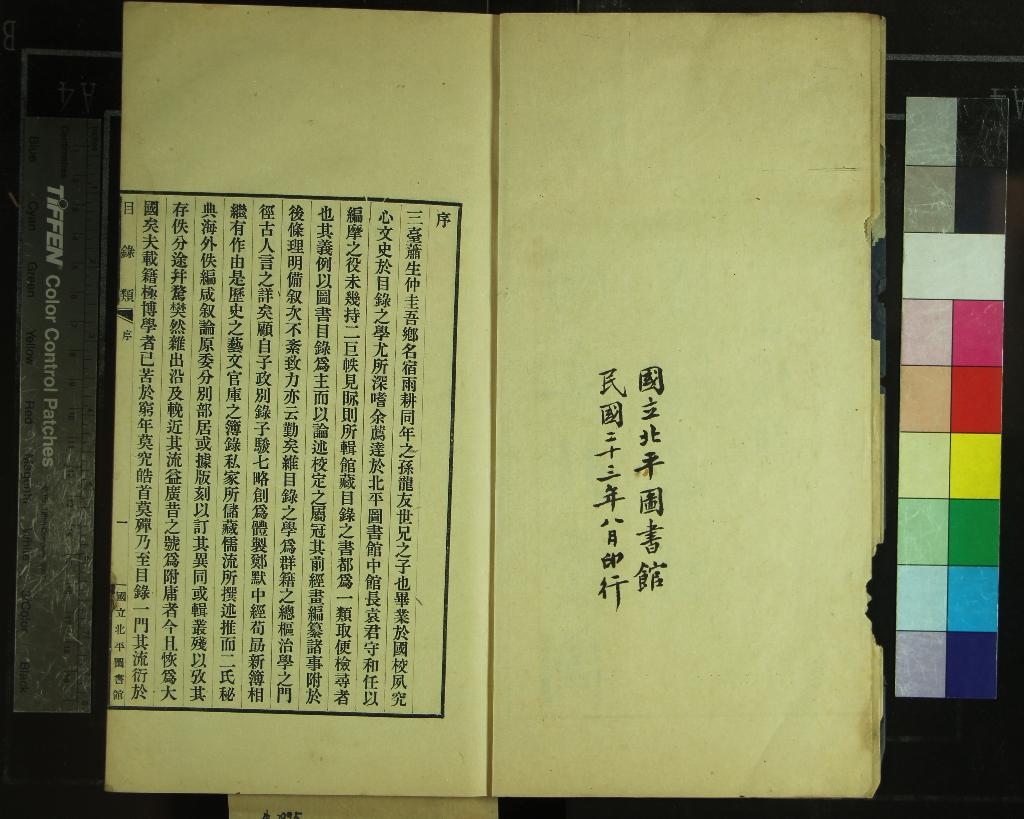 國立北平圖書館
民國二十三年八月印行
序
三臺蕭生仲圭吾鄉名宿雨耕同年之孫龍友世兄之子也畢業於國校夙究
心文史於目錄之學尤所深嗜余薦達於北平圖書館中館長袁君守和任以
編摩之役未幾持二巨帙見眎則所輯館藏目錄之書都為一類取便檢尋者
也其義例以圖書目錄為主而以論述校定之屬冠其前經畫編纂諸事附於
後條理明備叙次不紊致力亦云勤矣維目錄之學為群籍之總樞治學之門
徑古人言之詳矣顧自子政別錄子駿七略創為體製鄭默中經荀勗新簿相
繼有作由是歷史之藝文官庫之簿錄私家所儲藏儒流所撰述推而二氏秘
典海外佚編咸叙論原委分別部居或據版刻以訂其異同或輯叢殘以攷其
存佚分途幷騖樊然雜出沿及輓近其流益廣昔之號為附庸者今且恢為大
國矣夫載籍極博學者已苦於窮年莫究皓首莫殫乃至目錄一門其流衍於
目錄類
序
一
國立北平圖書館
TIFFEN Color Control Patches
Blue
Cyan
Green
Yellow
Red
Magenta
3/Color
Black